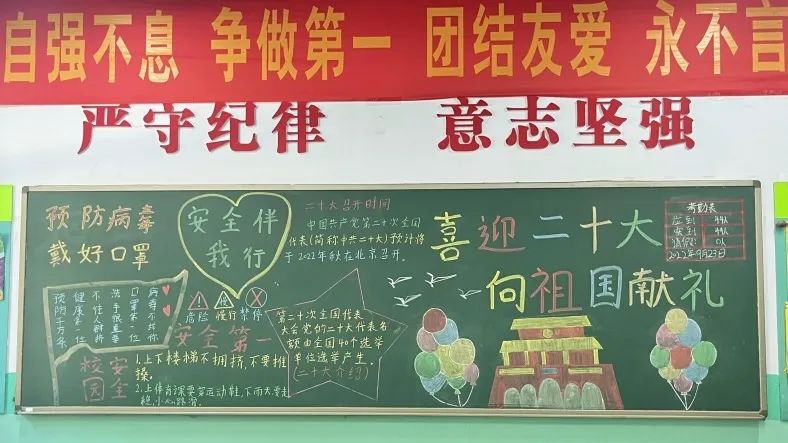 自强不息 争做第一 团结友爱 永不言
严守纪律 意志坚强
预防病毒
戴好口罩
安全伴
我行
二十大召开时间
中国共产党第二十次全国
代表(简称中共二十大)预计将
于2022年秋在北京召开。
喜迎二十大
向祖国献礼
考勤表
应到 44人
实到 44人
请假 0人
2022年9月23日
口罩第一位
洗手很重要
不往人群挤
健康第一位
预防千万条
危险 慢行 禁停
安全第一
校园安全
1.上下楼梯不拥挤,不要推
搡。
2.上体育课要穿运动鞋,下雨天要走
稳,小心路滑。
第二十次全国代表
大会党的二十大代表名
额由全国40个选举
单位选举产生.
(二十大介绍)